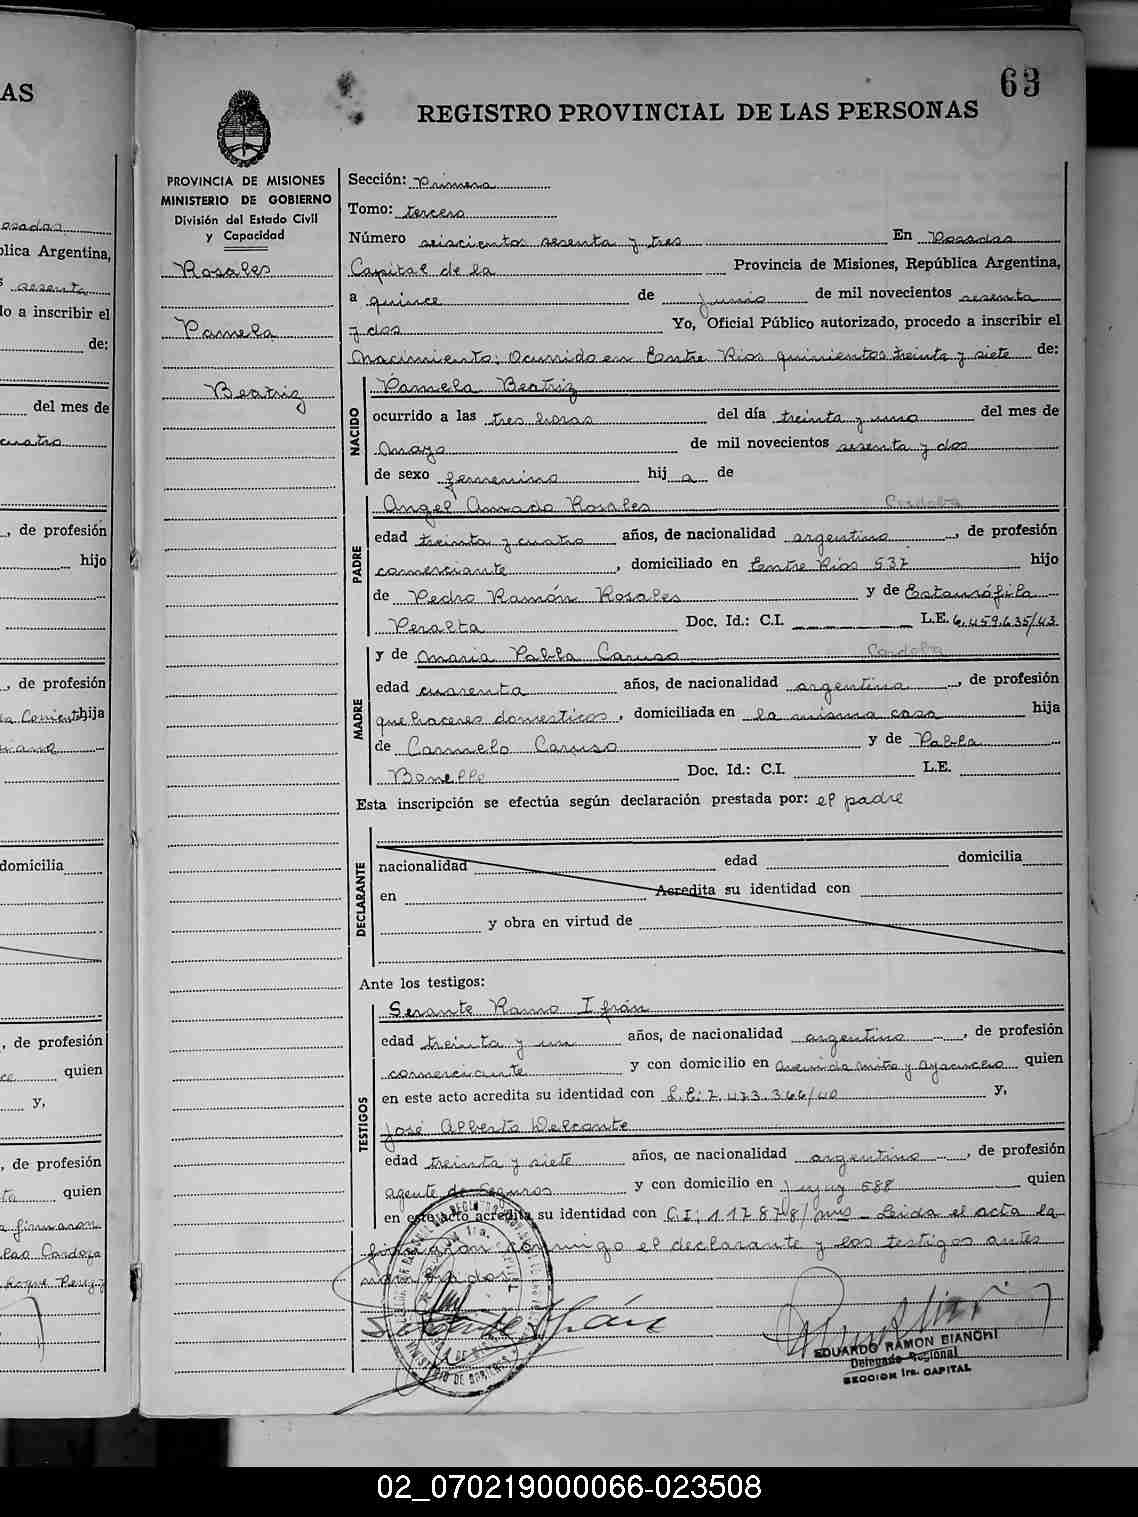 63
REGISTRO PROVINCIAL DE LAS PERSONAS
PROVINCIA DE MISIONES
MINISTERIO DE GOBIERNO
División del Estado Civil
y Capacidad
Rosales
Pamela
Beatriz
Sección: Primera
Tomo: tercero
Número seiscientos sesenta y tres En Posadas
Capital de la Provincia de Misiones, República Argentina,
a quince de junio de mil novecientos sesenta
y dos Yo, Oficial Público autorizado, procedo a inscribir el
Nacimiento: Ocurrido en Entre Rios quinientos treinta y siete de:
NACIDO
Pamela Beatriz
ocurrido a las tres horas del día treinta y uno del mes de
Mayo de mil novecientos sesenta y dos
de sexo femenino hij a de
PADRE
Angel Amado Rosales Cordoba
edad treinta y cuatro años, de nacionalidad argentino, de profesión
comerciante, domiciliado en Entre Rios 537 hijo
de Pedro Ramón Rosales y de Estauráfila
Peralta Doc. Id.: C.I. L.E. 6.459.635/43
MADRE
y de Maria Pabla Caruso Cordoba
edad cuarenta años, de nacionalidad argentina, de profesión
quehaceres domesticos, domiciliada en la misma casa hija
de Carmelo Caruso y de Pabla
Bonello Doc. Id.: C.I. L.E.
Esta inscripción se efectúa según declaración prestada por: el padre
DECLARANTE
nacionalidad edad domicilia
en Acredita su identidad con
y obra en virtud de
Ante los testigos:
TESTIGOS
Serante Ramo Ifrán
edad treinta y un años, de nacionalidad argentino, de profesión
comerciante y con domicilio en avenida mitre y Ayacucho quien
en este acto acredita su identidad con L.E: 7.473.366/40 y,
José Alberto Delconte
edad treinta y siete años, de nacionalidad argentino, de profesión
agente de Seguros y con domicilio en Jujuy 588 quien
en este acto acredita su identidad con C.I: 117878/mis - Leida el acta la
firmaron conmigo el declarante y los testigos antes
nombrados
EDUARDO RAMON BIANCHI
Delegado Regional
SECCION 1ra. CAPITAL
AS
osadas
blica Argentina,
sesenta
do a inscribir el
de:
del mes de
cuatro
, de profesión
hijo
, de profesión
hija
domicilia
, de profesión
quien
y,
, de profesión
quien
firmaron
Cardozo
Roque Perez y
02_070219000066-023508